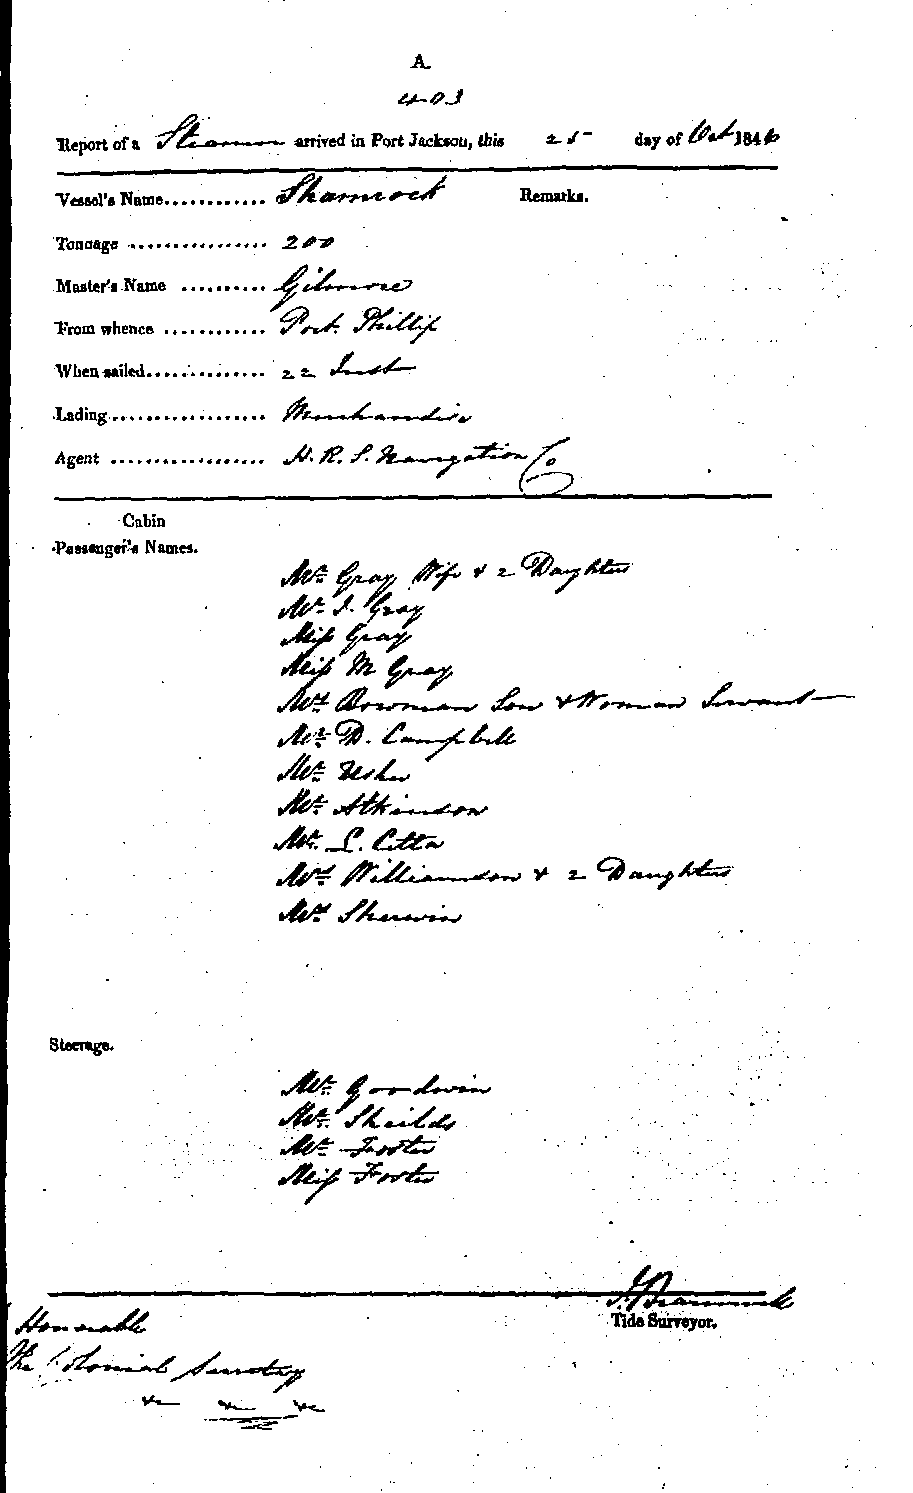 A.
403
Report of a Steamer arrived in Port Jackson, this 25 day of Oct 1846
Vessel's Name............ Shamrock Remarks.
Tonnage ................ 200
Master's Name .......... Gilmore
From whence ............ Port Phillip
When sailed.............. 22 Inst
Lading.................. Merchandise
Agent .................. H. R. S. Navigation Co
Cabin
Passenger's Names.
Mr Gray Wife & 2 Daughters
Mr J. Gray
Miss Gray
Miss M Gray
Mrs Bowman Son & Woman Servant
Mr D. Campbell
Mr Usher
Mr Atkinson
Mr L.
Mrs Williamson & 2 Daughters
Mrs Sherwin
Steerage.
Mr Goodwin
Mr Sheilds
Mr Foster
Miss Foster
Tide Surveyor.
Honorable
The Colonial Secretary
&c &c &c